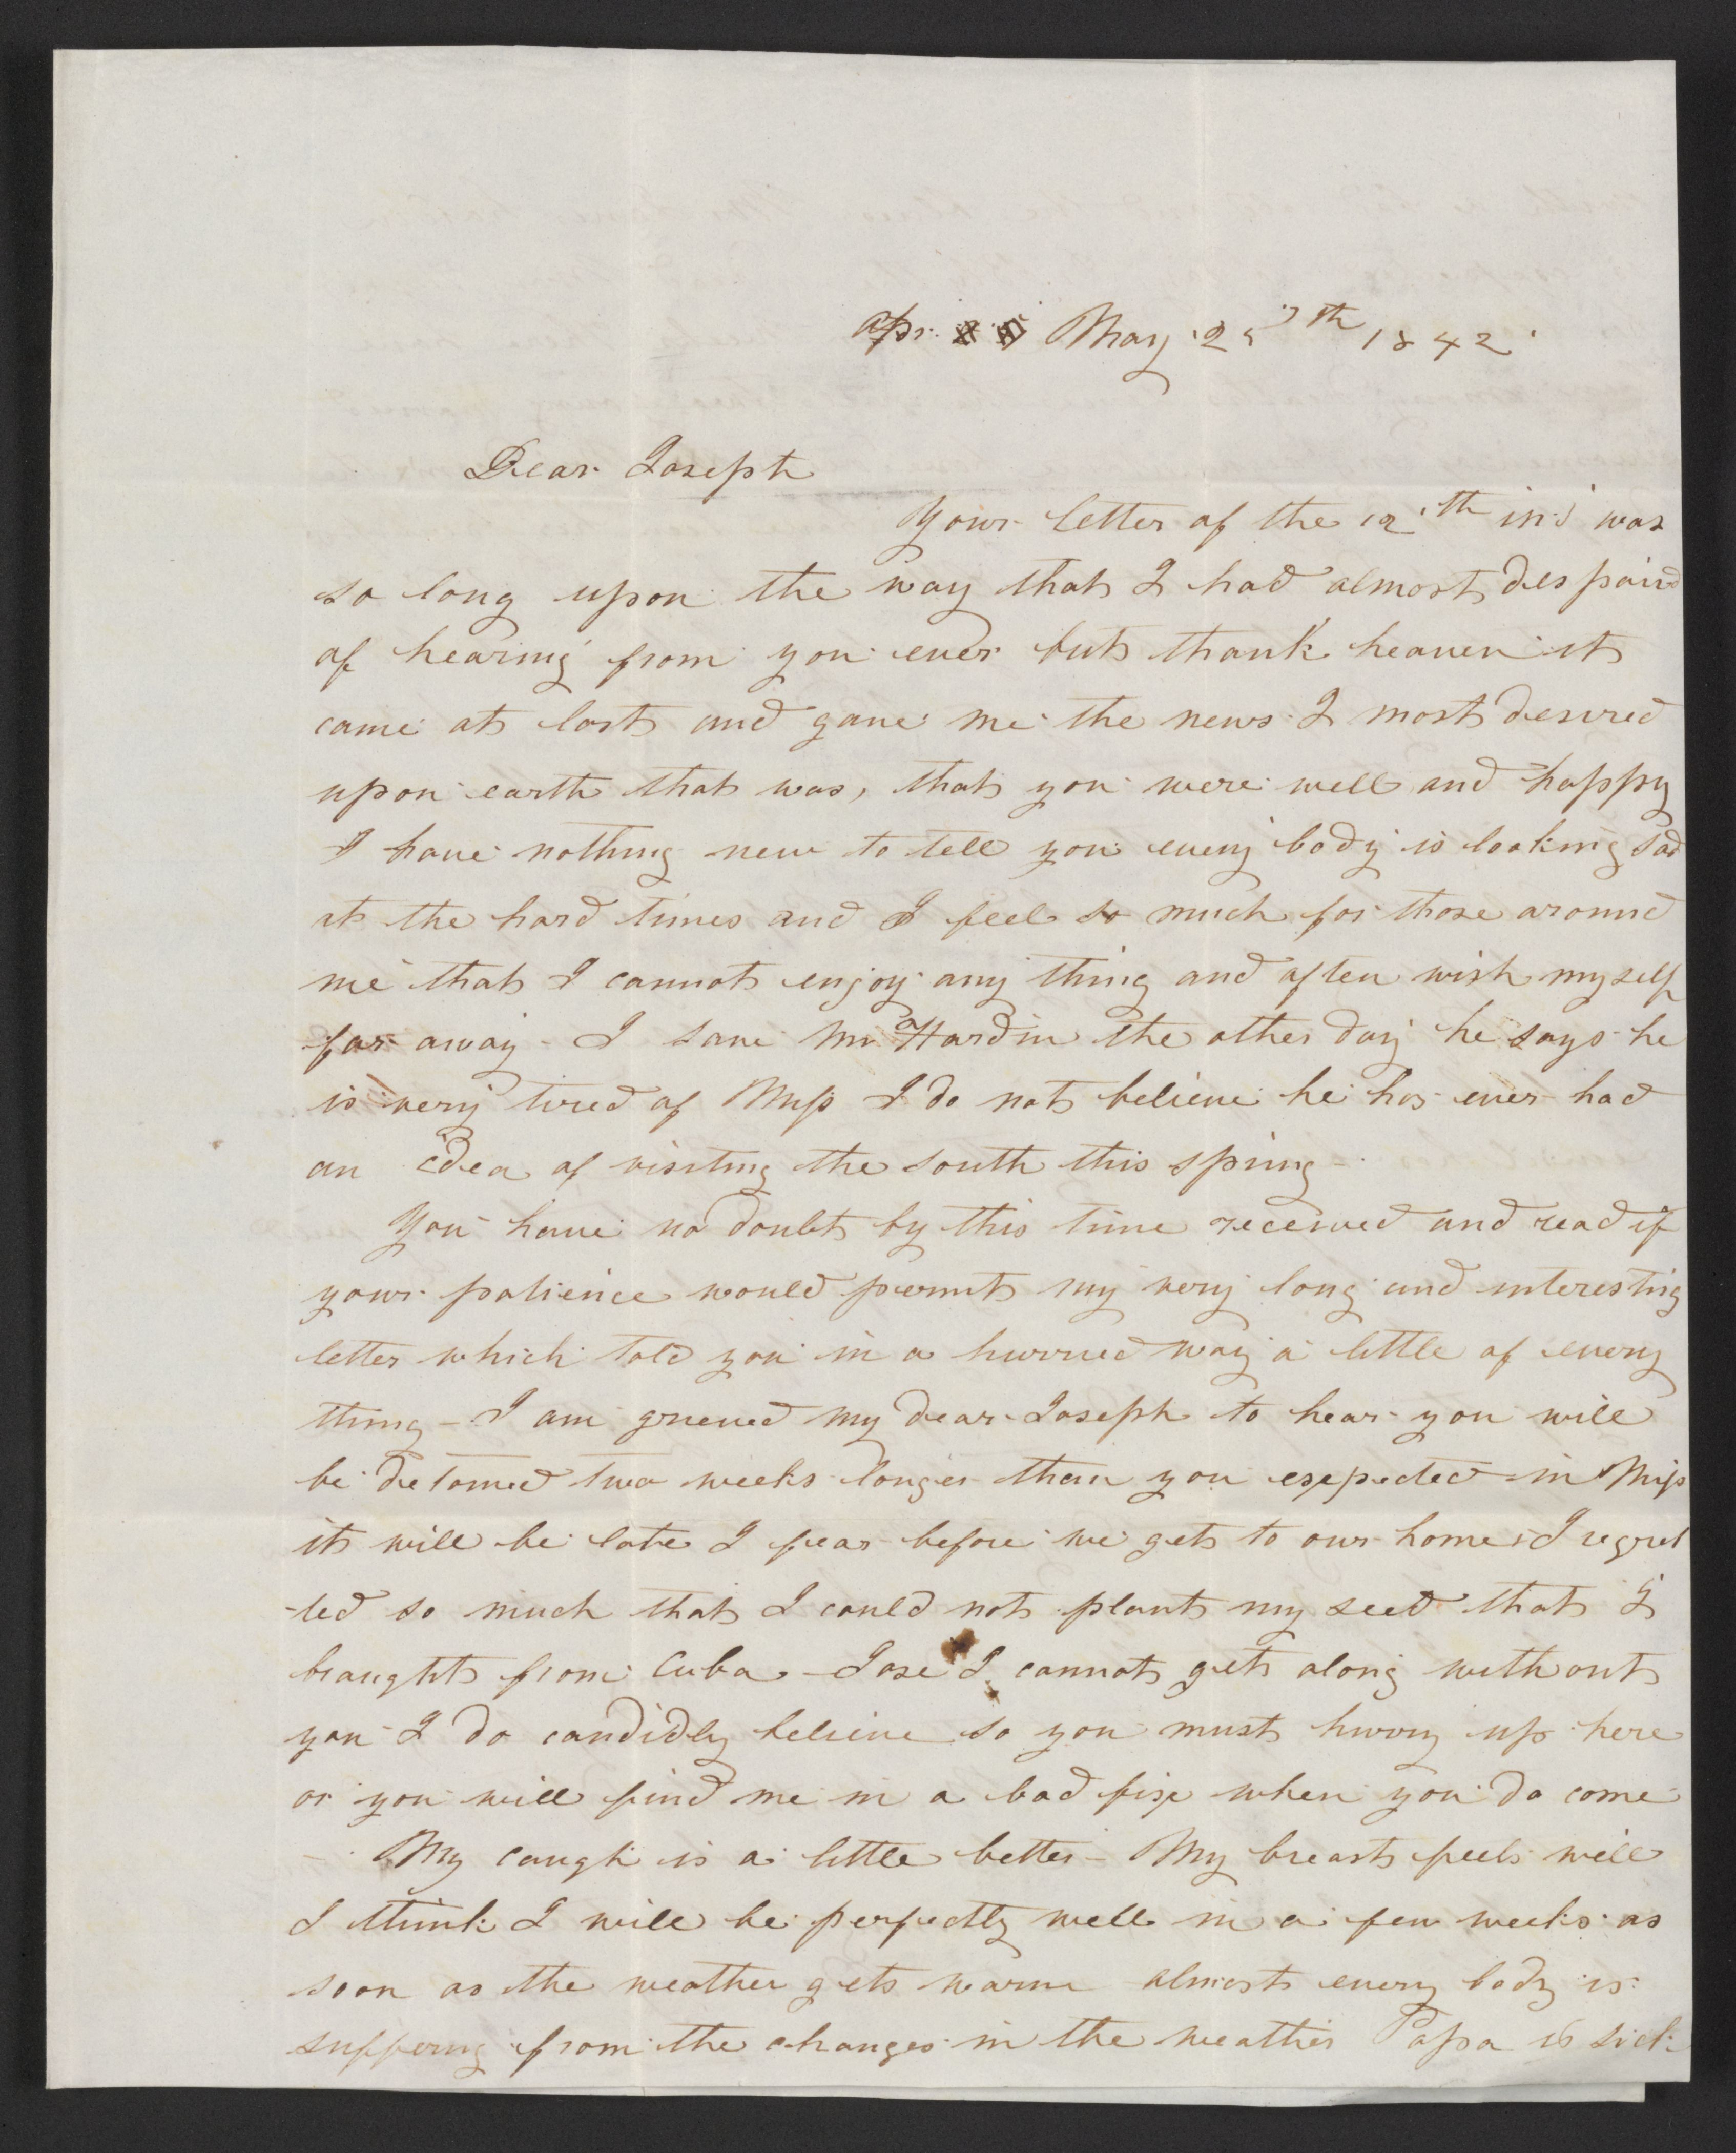 Apr. May 25th 1842
Dear Joseph
Your letter of the 12th ins was
so long upon the way that I had almost despaird
of hearing from you ever but thank heaven it
came at last and gave me the news I most desired
upon earth that was, that you were well and happy
I have nothing new to tell you every body is looking sad
at the hard times and I feel so much for those around
me that I cannot enjoy any thing and often wish myself
far away - I saw Mr Hardin the other day he says he
is very tired of Miss I do not believe he has ever had
an idea of visiting the south this spring -
You have no doubt by this time received and read if
your patience would permit my very long and interesting
letter which told you in a hurried way a little of every
thing - I am grieved my dear Joseph to hear you will
be detained two weeks longer than you expected in Miss
it will be late I fear before we get to our home I regret
-ted so much that I could not plant my seed that I
braught from Cuba - Jose I cannot get along without
you I do candidly believe so you must hurry up here
or you will find me in a bad fix when you do come
- My cough is a little better - My breast feels well
I think I will be perfectly well in a few weeks as
soon as the weather gets warm almost every body is
suffering from the changes in the weather Papa is sick